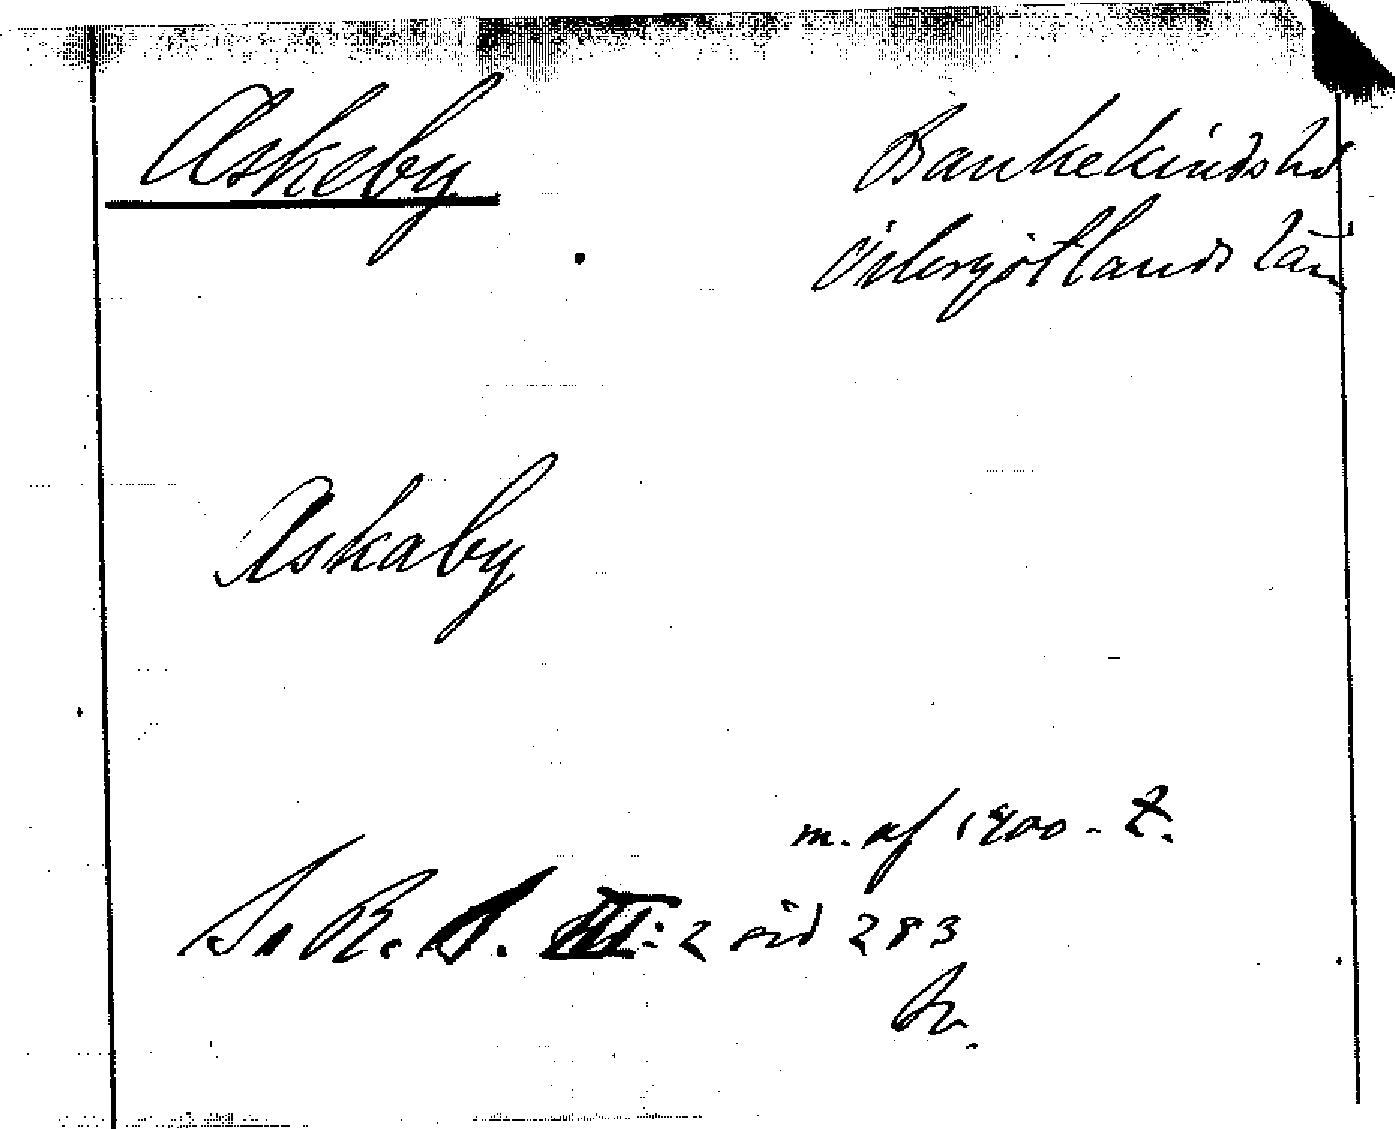 Askeby
Bankekinds hd
Östergötlands län
Askaby
m. af 1400-t.
Sv R. A. III: 2 sid 283